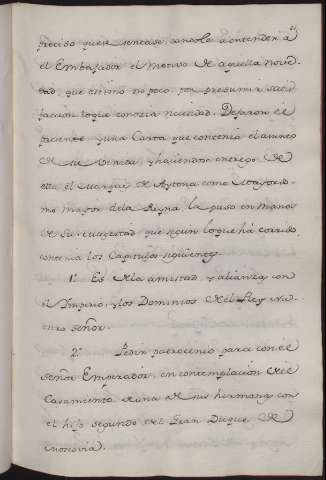 preciso que se sentase, dandole a entender a
el Embajador el motivo de aquella nove-
dad, que estimò no poco, por presumir satis-
faccion lo que conocia necesidad. Dejaron el
presente y una Carta que contenia el asunto
de su Venida, y haviendose encargo de
ella el Marques de Aytona como Mayordo-
mo mayor de la Reyna, la puso en manos
de Su Magestad que segun lo que há corrido,
contenia los Capitulos siguientes.
1º Es de la amistad, y alianza con
el Imperio, y los Dominios del Rey nu-
estro señor.
2º Pedir patrocinio para con el
señor Emperador, en contemplacion del
Casamiento de una de sus hermanas con
el hijo segundo del Gran Duque de
Moscovia.